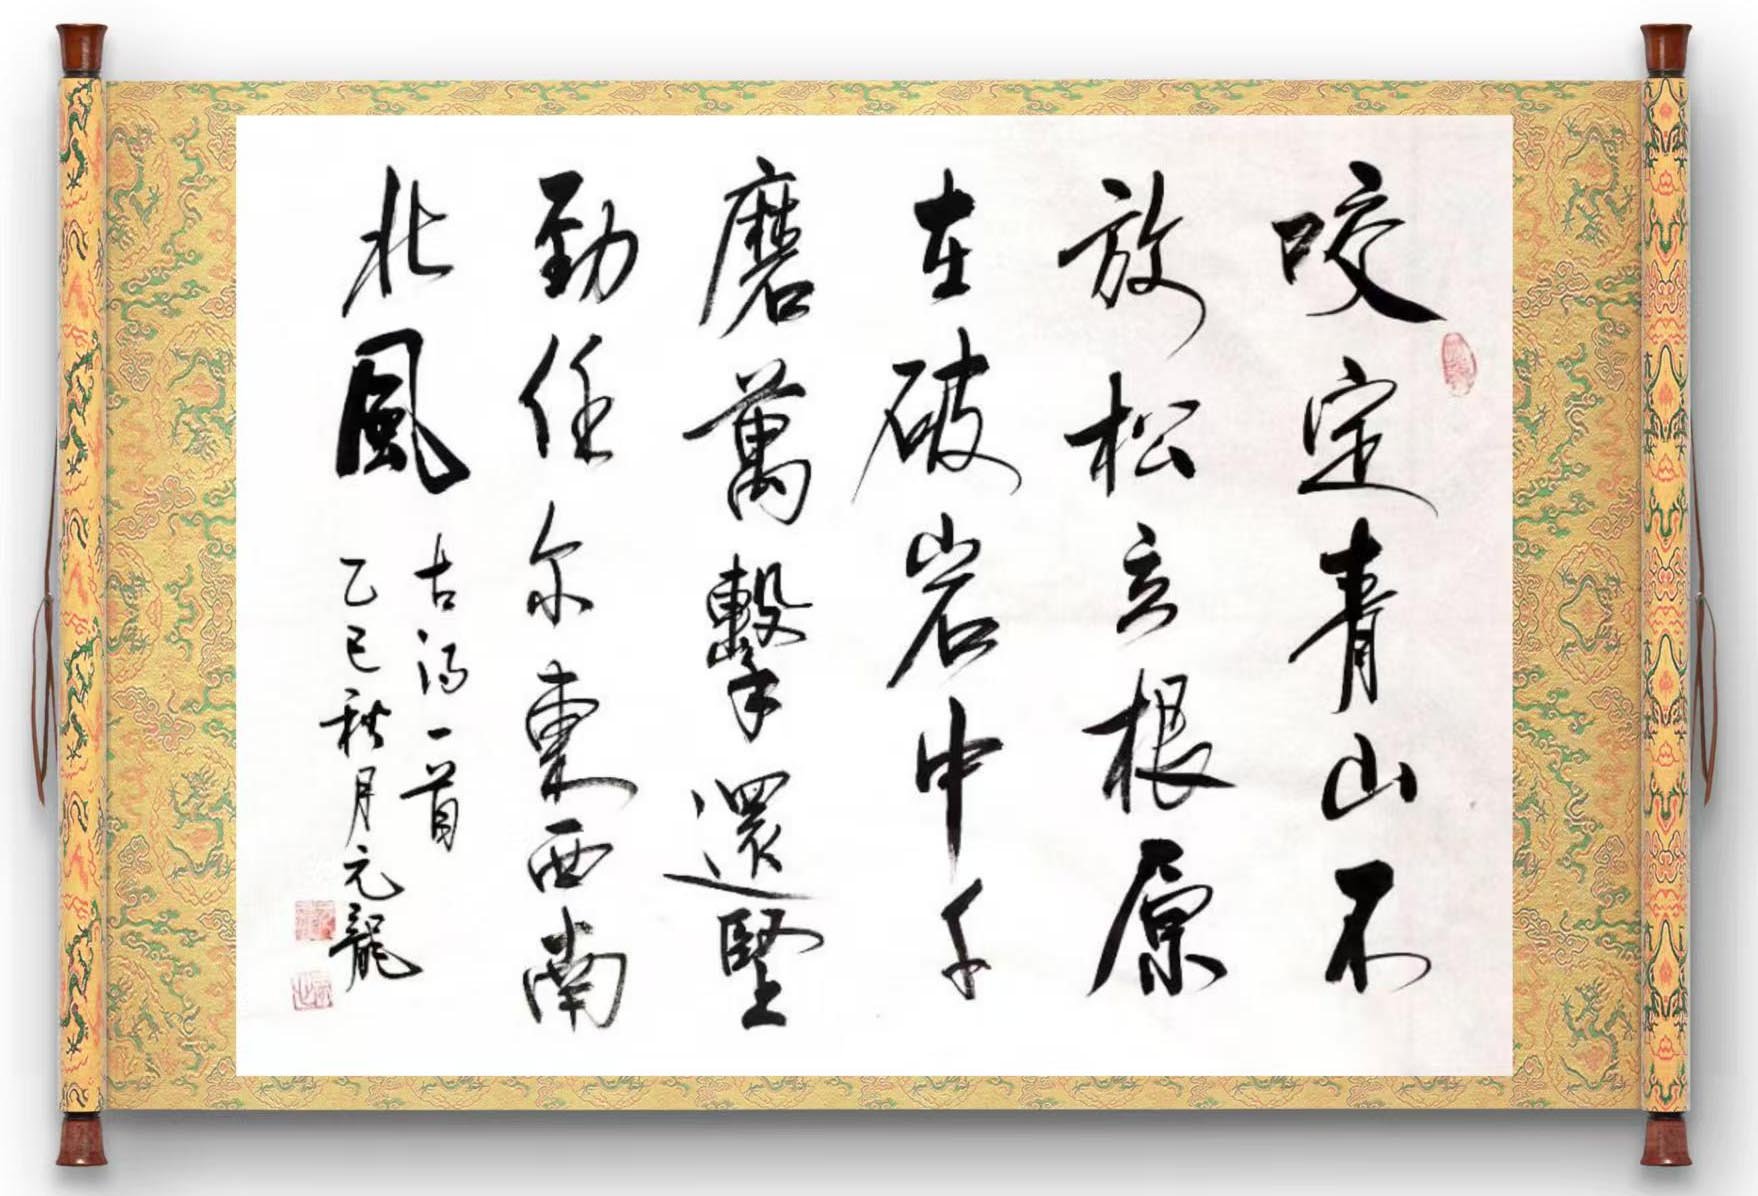 咬定青山不
放松立根原
在破岩中千
磨萬擊還堅
勁任尔東西南
北風
古诗一首
乙巳秋月元龍